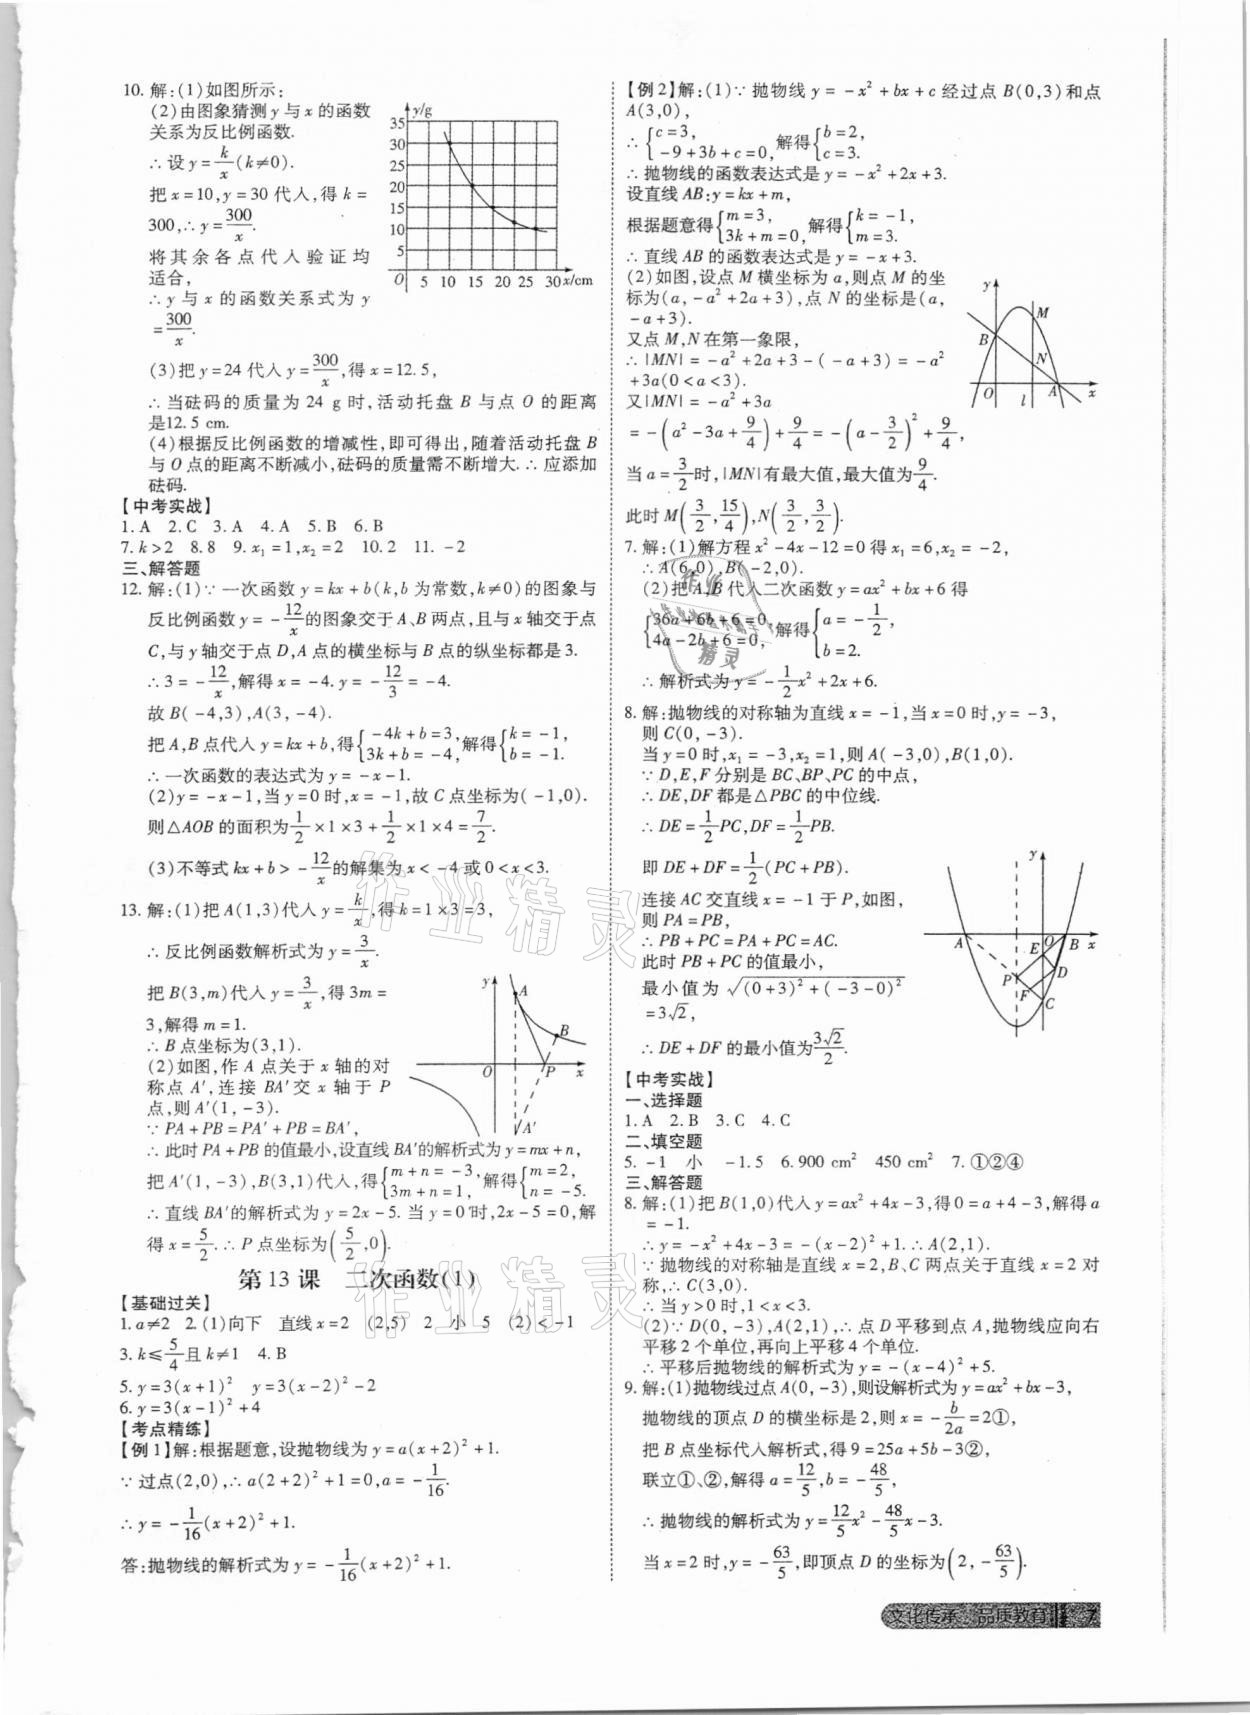 10. 解:(1)如图所示:
(2)由图象猜测 y 与 x 的函数
关系为反比例函数.
∴设 y = k/x (k≠0).
把 x = 10, y = 30 代入, 得 k =
300, ∴ y = 300/x.
将其余各点代入验证均
适合,
∴ y 与 x 的函数关系式为 y
= 300/x.
y/g
35
30
25
20
15
10
5
O 5 10 15 20 25 30 x/cm
(3)把 y = 24 代入 y = 300/x, 得 x = 12.5,
∴当砝码的质量为 24 g 时, 活动托盘 B 与点 O 的距离
是12.5 cm.
(4)根据反比例函数的增减性, 即可得出, 随着活动托盘 B
与 O 点的距离不断减小, 砝码的质量需不断增大. ∴应添加
砝码.
【中考实战】
1. A 2. C 3. A 4. A 5. B 6. B
7. k > 2 8. 8 9. x₁ = 1, x₂ = 2 10. 2 11. -2
三、解答题
12. 解:(1)∵一次函数 y = kx + b(k, b 为常数, k≠0)的图象与
反比例函数 y = -12/x 的图象交于 A、B 两点, 且与 x 轴交于点
C, 与 y 轴交于点 D, A 点的横坐标与 B 点的纵坐标都是 3.
∴ 3 = -12/x, 解得 x = -4. y = -12/3 = -4.
故 B(-4,3), A(3,-4).
把 A, B 点代入 y = kx + b, 得{-4k + b = 3, 3k + b = -4, 解得{k = -1, b = -1.
∴一次函数的表达式为 y = -x - 1.
(2) y = -x - 1, 当 y = 0 时, x = -1, 故 C 点坐标为(-1,0).
则△AOB 的面积为 1/2 × 1 × 3 + 1/2 × 1 × 4 = 7/2.
(3)不等式 kx + b > -12/x 的解集为 x < -4 或 0 < x < 3.
13. 解:(1)把 A(1,3)代入 y = k/x, 得 k = 1 × 3 = 3,
∴反比例函数解析式为 y = 3/x.
把 B(3,m)代入 y = 3/x, 得 3m =
3, 解得 m = 1.
∴ B 点坐标为(3,1).
(2)如图, 作 A 点关于 x 轴的对
称点 A′, 连接 BA′交 x 轴于 P
点, 则 A′(1,-3).
∵ PA + PB = PA′ + PB = BA′,
y
A
B
O P x
A′
∴此时 PA + PB 的值最小, 设直线 BA′的解析式为 y = mx + n,
把 A′(1,-3), B(3,1)代入, 得{m + n = -3, 3m + n = 1, 解得{m = 2, n = -5.
∴直线 BA′的解析式为 y = 2x - 5. 当 y = 0 时, 2x - 5 = 0, 解
得 x = 5/2. ∴ P 点坐标为(5/2, 0).
第 13 课 二次函数(1)
【基础过关】
1. a≠2 2. (1)向下 直线 x = 2 (2,5) 2 小 5 (2) < -1
3. k ≤ 5/4 且 k≠1 4. B
5. y = 3(x + 1)² y = 3(x - 2)² - 2
6. y = 3(x - 1)² + 4
【考点精练】
【例 1】解:根据题意, 设抛物线为 y = a(x + 2)² + 1.
∵过点(2,0), ∴ a(2 + 2)² + 1 = 0, a = -1/16.
∴ y = -1/16(x + 2)² + 1.
答:抛物线的解析式为 y = -1/16(x + 2)² + 1.
【例 2】解:(1)∵抛物线 y = -x² + bx + c 经过点 B(0,3)和点
A(3,0),
∴{c = 3, -9 + 3b + c = 0, 解得{b = 2, c = 3.
∴抛物线的函数表达式是 y = -x² + 2x + 3.
设直线 AB: y = kx + m,
根据题意得{m = 3, 3k + m = 0, 解得{k = -1, m = 3.
∴直线 AB 的函数表达式是 y = -x + 3.
(2)如图, 设点 M 横坐标为 a, 则点 M 的坐
标为(a, -a² + 2a + 3), 点 N 的坐标是(a,
-a + 3).
又点 M, N 在第一象限,
∴ |MN| = -a² + 2a + 3 - (-a + 3) = -a²
+ 3a(0 < a < 3).
又|MN| = -a² + 3a
y
M
B
N
O l A x
= -(a² - 3a + 9/4) + 9/4 = -(a - 3/2)² + 9/4,
当 a = 3/2 时, |MN|有最大值, 最大值为 9/4.
此时 M(3/2, 15/4), N(3/2, 3/2).
7. 解:(1)解方程 x² - 4x - 12 = 0 得 x₁ = 6, x₂ = -2,
∴ A(6,0), B(-2,0).
(2)把 A, B 代入二次函数 y = ax² + bx + 6 得
{36a + 6b + 6 = 0, 4a - 2b + 6 = 0, 解得{a = -1/2, b = 2.
∴解析式为 y = -1/2 x² + 2x + 6.
8. 解:抛物线的对称轴为直线 x = -1, 当 x = 0 时, y = -3,
则 C(0,-3).
当 y = 0 时, x₁ = -3, x₂ = 1, 则 A(-3,0), B(1,0).
∵ D, E, F 分别是 BC、BP、PC 的中点,
∴ DE, DF 都是△PBC 的中位线.
∴ DE = 1/2 PC, DF = 1/2 PB.
即 DE + DF = 1/2(PC + PB).
连接 AC 交直线 x = -1 于 P, 如图,
则 PA = PB,
∴ PB + PC = PA + PC = AC.
此时 PB + PC 的值最小,
最小值为 √((0 + 3)² + (-3 - 0)²)
= 3√2,
∴ DE + DF 的最小值为 3√2/2.
y
A O B x
E
D
P
F
C
【中考实战】
一、选择题
1. A 2. B 3. C 4. C
二、填空题
5. -1 小 -1.5 6. 900 cm² 450 cm² 7. ①②④
三、解答题
8. 解:(1)把 B(1,0)代入 y = ax² + 4x - 3, 得 0 = a + 4 - 3, 解得 a
= -1.
∴ y = -x² + 4x - 3 = -(x - 2)² + 1. ∴ A(2,1).
∵抛物线的对称轴是直线 x = 2, B、C 两点关于直线 x = 2 对
称, ∴ C(3,0).
∴当 y > 0 时, 1 < x < 3.
(2)∵ D(0,-3), A(2,1), ∴点 D 平移到点 A, 抛物线应向右
平移 2 个单位, 再向上平移 4 个单位.
∴平移后抛物线的解析式为 y = -(x - 4)² + 5.
9. 解:(1)抛物线过点 A(0,-3), 则设解析式为 y = ax² + bx - 3,
抛物线的顶点 D 的横坐标是 2, 则 x = -b/2a = 2①,
把 B 点坐标代入解析式, 得 9 = 25a + 5b - 3②,
联立①、②, 解得 a = 12/5, b = -48/5,
∴抛物线的解析式为 y = 12/5 x² - 48/5 x - 3.
当 x = 2 时, y = -63/5, 即顶点 D 的坐标为(2, -63/5).
文化传承 品质教育 7
作业精灵
作业精灵
作业
精灵